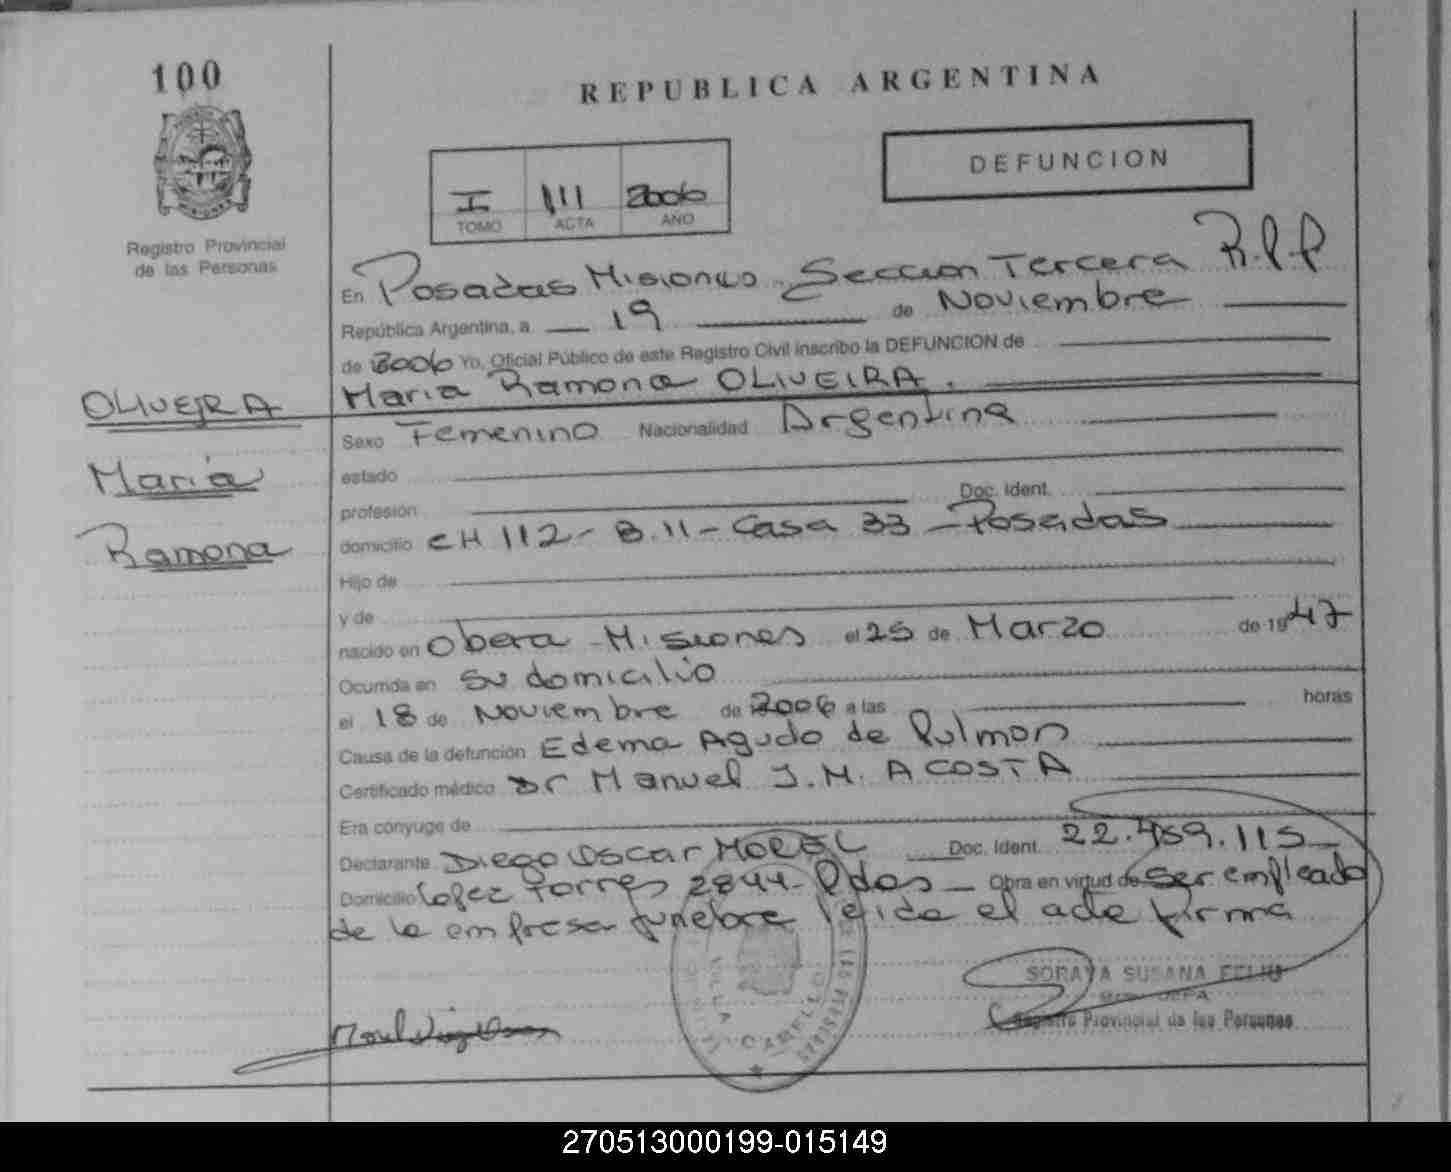 100
REPUBLICA ARGENTINA
DEFUNCION
I 111 2006
TOMO ACTA AÑO
Registro Provincial
de las Personas
En Posadas Misiones Seccion Tercera R.P.P
República Argentina, a 19 de Noviembre
de 2006 Yo, Oficial Público de este Registro Civil inscribo la DEFUNCION de
Maria Ramona OLIVEIRA.
OLIVEIRA
María
Ramona
Sexo Femenino Nacionalidad Argentina
estado
profesión Doc. Ident.
domicilio CH 112 - B. 11 - Casa 33 - Posadas
Hijo de
y de
nacido en Obera - Misiones el 25 de Marzo de 1947
Ocurrida en su domicilio
el 18 de Noviembre de 2006 a las horas
Causa de la defunción Edema Agudo de Pulmon
Certificado médico Dr Manuel J.M. ACOSTA
Era cónyuge de
Declarante Diego Oscar MOREL Doc. Ident. 22.459.115
Domicilio Lopez Torres 2844 - Pdas - Obra en virtud de ser empleado
de la empresa funebre leida el acta firma
VILLA CABELLO
SORAYA SUSANA FELIU
Registro Provincial de las Personas
270513000199-015149